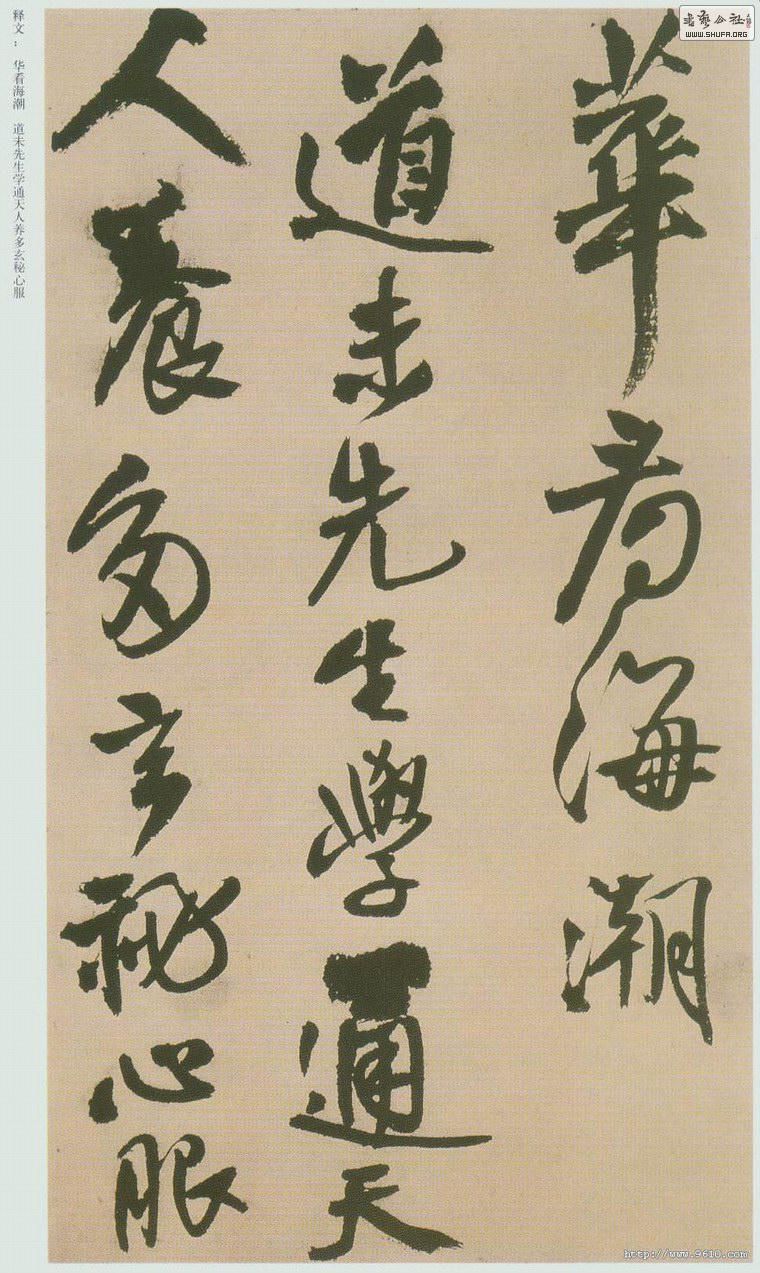 華看海潮
道未先生學通天
人養多玄秘心服
释文： 华看海潮 道未先生学通天人养多玄秘心服
WWW.SHUFA.ORG
http://www.9610.com